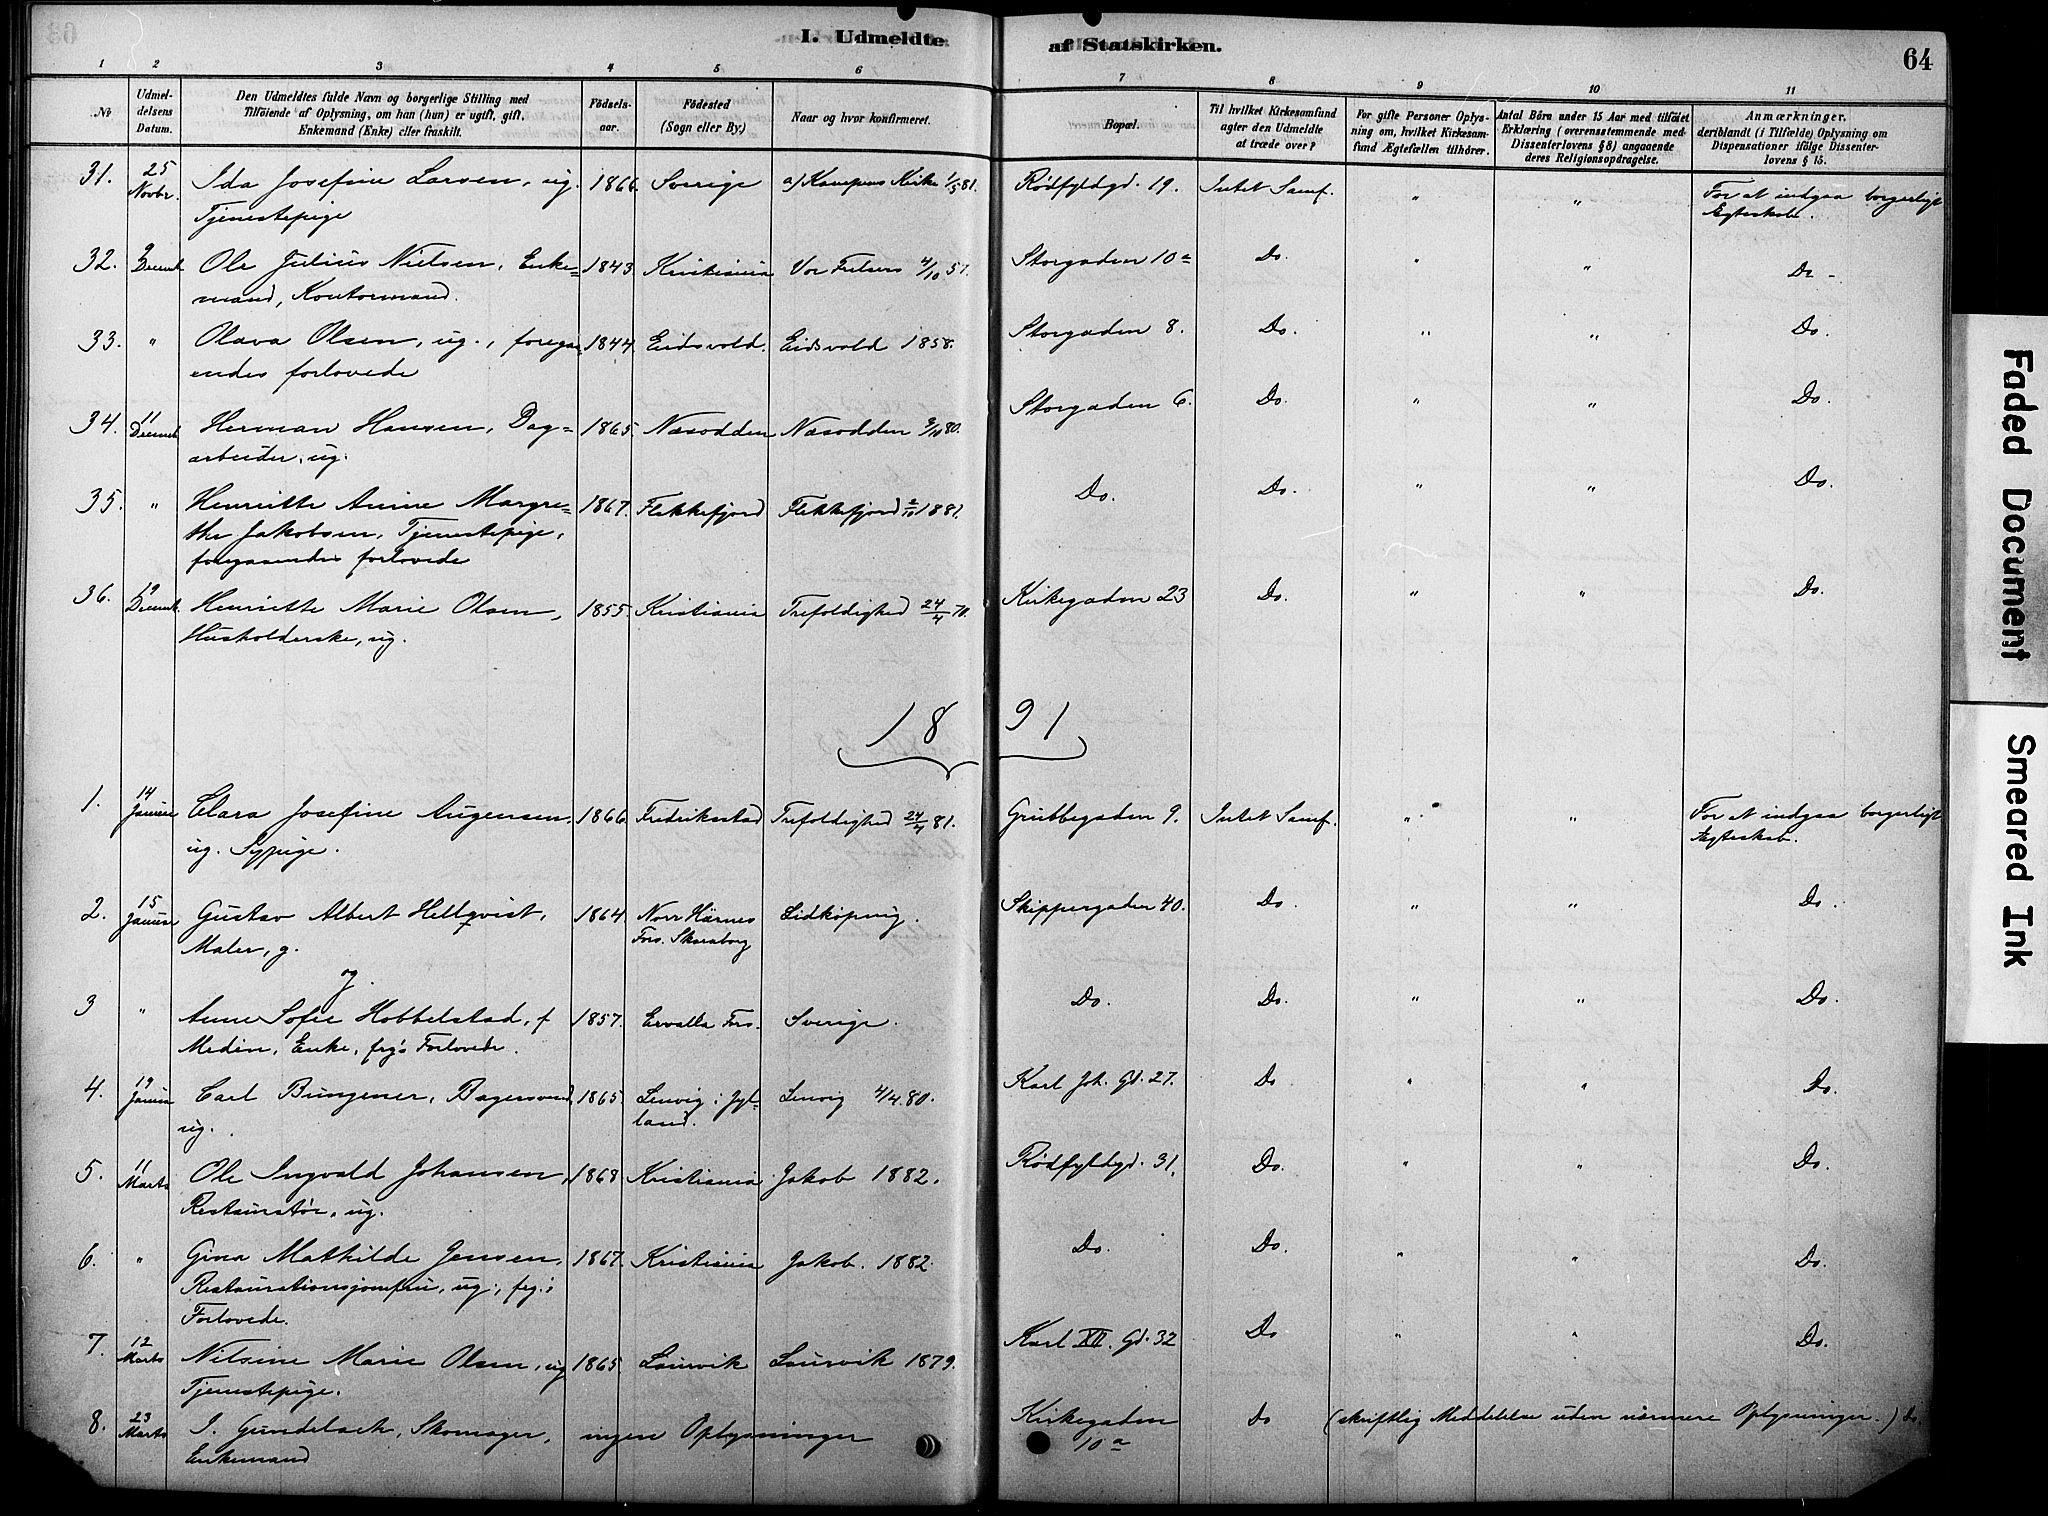 I. Udmeldte af Statskirken.
64
1 2 3 4 5 6 7 8 9 10 11
No
Udmeldelsens Datum.
Den Udmeldtes fulde Navn og borgerlige Stilling med
Tilføiende af Oplysning, om han (hun) er ugift, gift,
Enkemand (Enke) eller fraskilt.
Fødselsaar.
Fødested
(Sogn eller By.)
Naar og hvor konfirmeret.
Bopæl.
Til hvilket Kirkesamfund
agter den Udmeldte
at træde over?
For gifte Personer Oplysning om, hvilket Kirkesamfund Ægtefællen tilhører.
Antal Børn under 15 Aar med tilføiet
Erklæring (overensstemmende med
Dissenterlovens § 8) angaaende
deres Religionsopdragelse.
Anmærkninger,
deriblandt (i Tilfælde) Oplysning om
Dispensationer ifølge Dissenterlovens § 15.
31. 25 Novbr. Ida Josefine Larsen, ug. 1866 Sverige a/ Kampens Kirke 1/5 81. Rødfyldgd. 19. Intet Samf. " " For at indgaa borgerligt
Tjenestepige Egteskab.
32. 9 Decemb. Ole Julius Nielsen, Enke= 1843 Kristiania Vor Frelsers 4/10 57. Storgaden 10a Do. " " Do -
mand, Kontormand.
33. " Olava Olsen, ug., foregaa 1844 Eidsvold. Eidsvold 1858. Storgaden 8. Do. " " Do.
endes forlovede
34. 11 Decemb. Herman Hansen, Dag= 1865 Næsodden Næsodden 3/10 80. Storgaden 6. Do. " " Do.
arbeider, ug.
35. " Henriette Anine Margre= 1867. Flekkefjord Flekkefjord 2/10 1881. Do. Do. " " Do.
the Jakobsen, Tjenestepige,
foregaaendes forlovede
36. 19 Decemb. Henriette Marie Olsen, 1855 Kristiania Trefoldighed 24/4 70. Kirkegaden 23 Do. " " Do.
Husholderske, ug.
1891
1. 14 Januar Clara Josefine Augensen, 1866 Fredriksstad Trefoldighed 24/4 81. Grubbegaden 9. Intet Samf. " " For at indgaa borgerligt
ug. Sypige. Egteskab.
2. 15 Januar Gustav Albert Hellqvist, 1864 Norr Härnes Lidköping. Skippergaden 40. Do. " " Do.
Maler, g. Fors. Skaraborg
og
3 " Anne Sofie Hobbelstad, f 1857. Ervalla Fors. Sverige. Do. Do. " " Do.
Medin, Enke, frg's Forlovede.
4. 19 Januar Carl Bungener, Bagersvend, 1865 Lemvig i Jyl- Lemvig 4/4.80. Karl Joh. Gd. 27. Do " " Do.
ug. land.
5. 11 Marts Ole Ingvald Johansen, 1868 Kristiania Jakob 1882. Rødfyldgd. 31. Do. " " Do.
Restauratør, ug.
6. " Gina Mathilde Jensen, 1867. Kristiania Jakob. 1882. Do. Do. " " Do.
Restaurationsjomfru, ug., frg.s
Forlovede.
7. 12 Marts Nilsine Marie Olsen, ug 1865 Laurvik Laurvik 1879. Karl XII. Gd. 32 Do " " Do.
Tjenestepige.
8. 23 Marts I. Gundelach, Skomager, ingen Oplysninger Kirkegaden 10a Do (skriftlig Meddelelse uden nærmere Oplysninger.) Do.
Enkemand
Faded Document
Smeared Ink